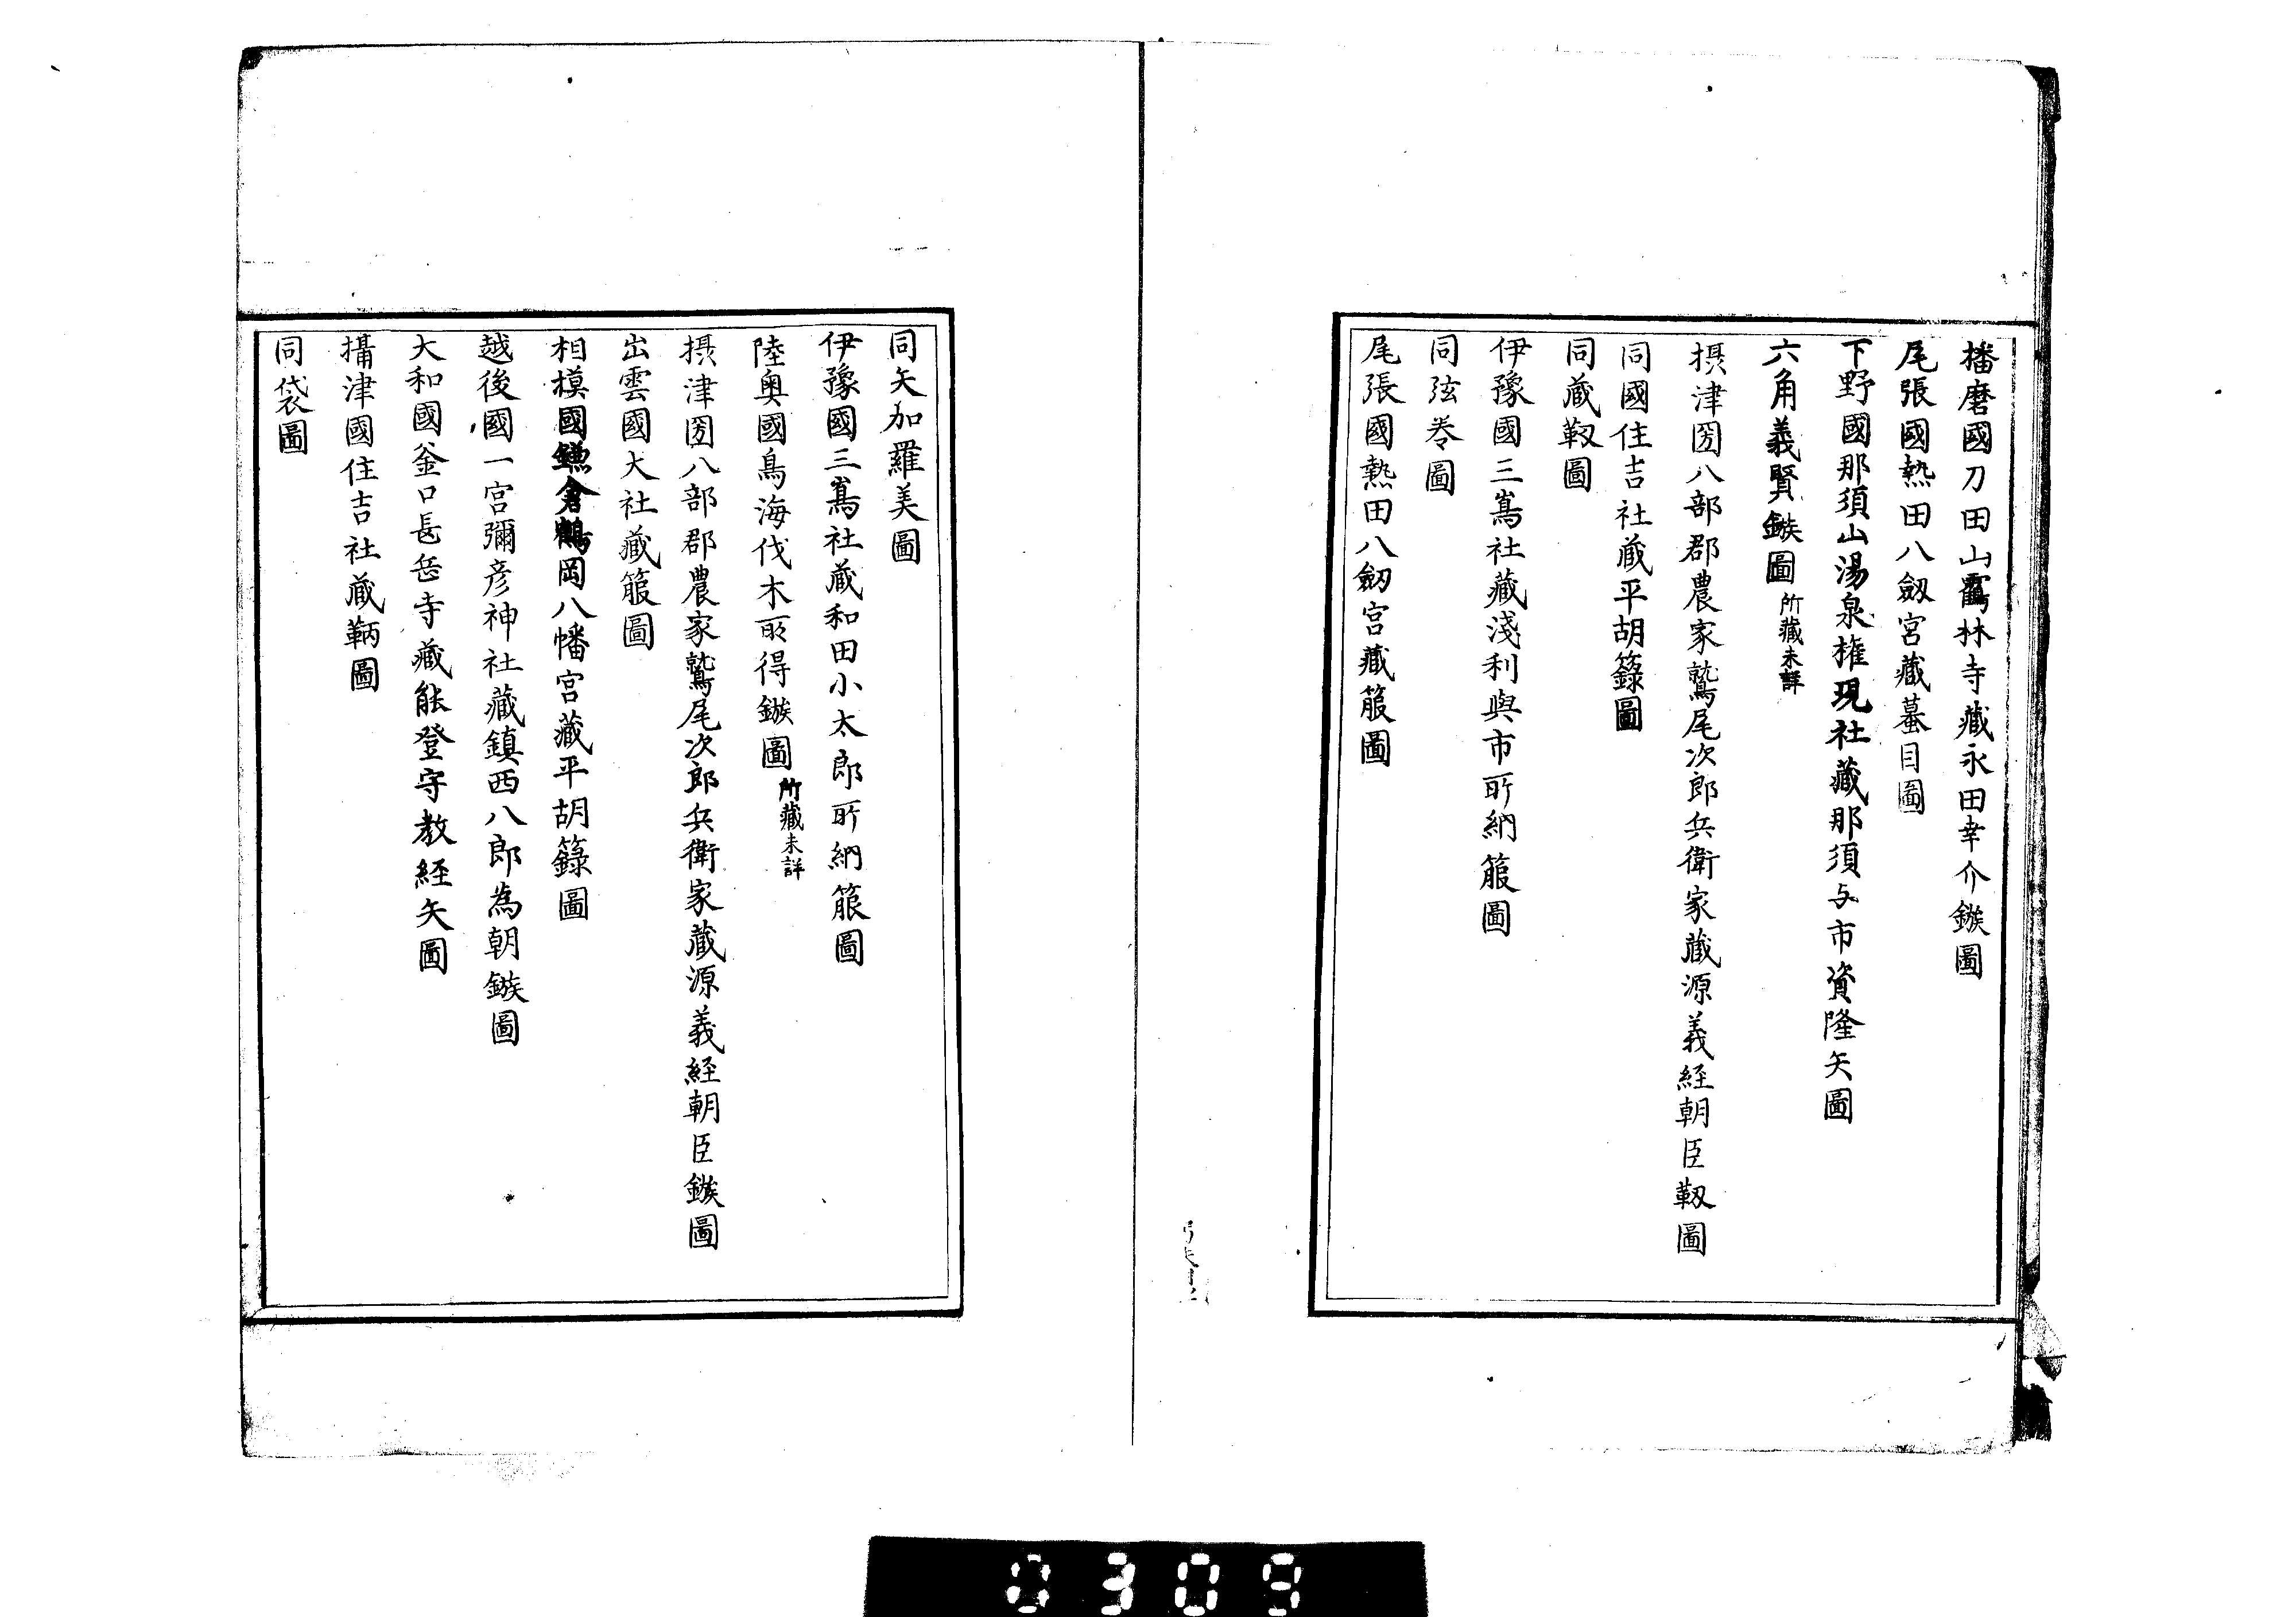 播磨國刀田山鶴林寺藏永田幸介鏃圖
尾張國熱田八劔宮藏蟇目圖
下野國那須山湯泉権現社藏那須与市資隆矢圖
六角義賢鏃圖 所藏未詳
摂津圀八部郡農家鷲尾次郎兵衛家蔵源義経朝臣靫圖
同國住吉社蔵平胡籙圖
同蔵靫圖
伊豫國三嶌社藏淺利與市所納箙圖
同弦巻圖
尾張國熱田八劔宮藏箙圖
同矢加羅美圖
伊豫國三嶌社蔵和田小太郎所納箙圖
陸奥國鳥海伐木所得鏃圖 所藏未詳
摂津圀八部郡農家鷲尾次郎兵衛家蔵源義経朝臣鏃圖
出雲國大社藏箙圖
相摸國鎌倉鶴岡八幡宮藏平胡籙圖
越後國一宮彌彦神社藏鎮西八郎為朝鏃圖
大和國釜口長岳寺藏能登守教経矢圖
攝津國住吉社蔵鞆圖
同袋圖
0309